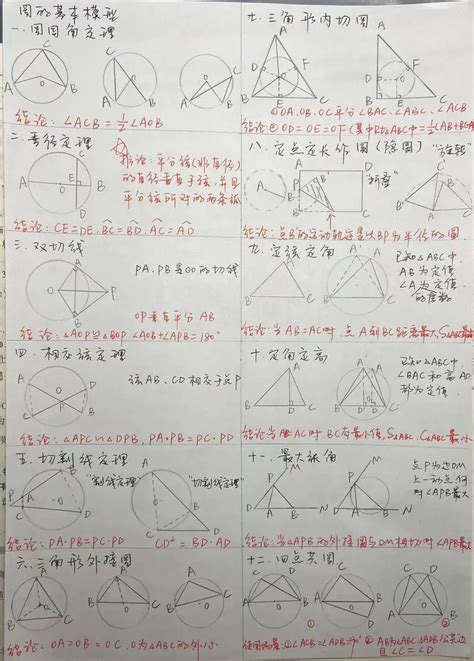 圆的基本模型
一.圆周角定理
结论:∠ACB=½∠AOB
二.垂径定理
推论:平分弦(非直径)
的直径垂直于弦,并且
平分弦所对的两条弧
结论:CE=DE,BC=BD,AC=AD
三.双切线
PA,PB是⊙O的切线
OP垂直平分AB
结论:△AOP≌△BOP,∠AOB+∠APB=180°
四.相交弦定理
弦AB、CD相交于点P
结论:△APC∽△DPB,PA·PB=PC·PD
五.切割线定理
"割线定理"
"切割线定理"
结论:PA·PB=PC·PD
CD²=BD·AD
六.三角形外接圆
结论:OA=OB=OC,O为△ABC的外心
七.三角形内切圆
结论:①OA、OB、OC平分∠BAC、∠ABC、∠ACB
②OD=OE=OF
八.定点定长作圆(隐圆)
"旋转"
"折叠"
结论:点B'的运动轨迹是以BP为半径的圆
九.定弦定角
已知△ABC中,
AB为定值
∠A为定值
的度数
结论:当AB=AC时,点A到BC距离最大,S△ABC最大
十.定角定高
已知△ABC中,
∠BAC和高AD
都为定值
结论:当AB=AC时,BC有最小值,S△ABC,C△ABC最小
十一.最大张角
点P为边DM
上一动点,何
时∠APB最大
结论:当△APB的外接圆与DM相切时∠APB最大
十二.四点共圆
①
②
使用场景:①∠ACB=∠ADB=90°
②AB为△ABC,△APB公共边
且∠C=∠D